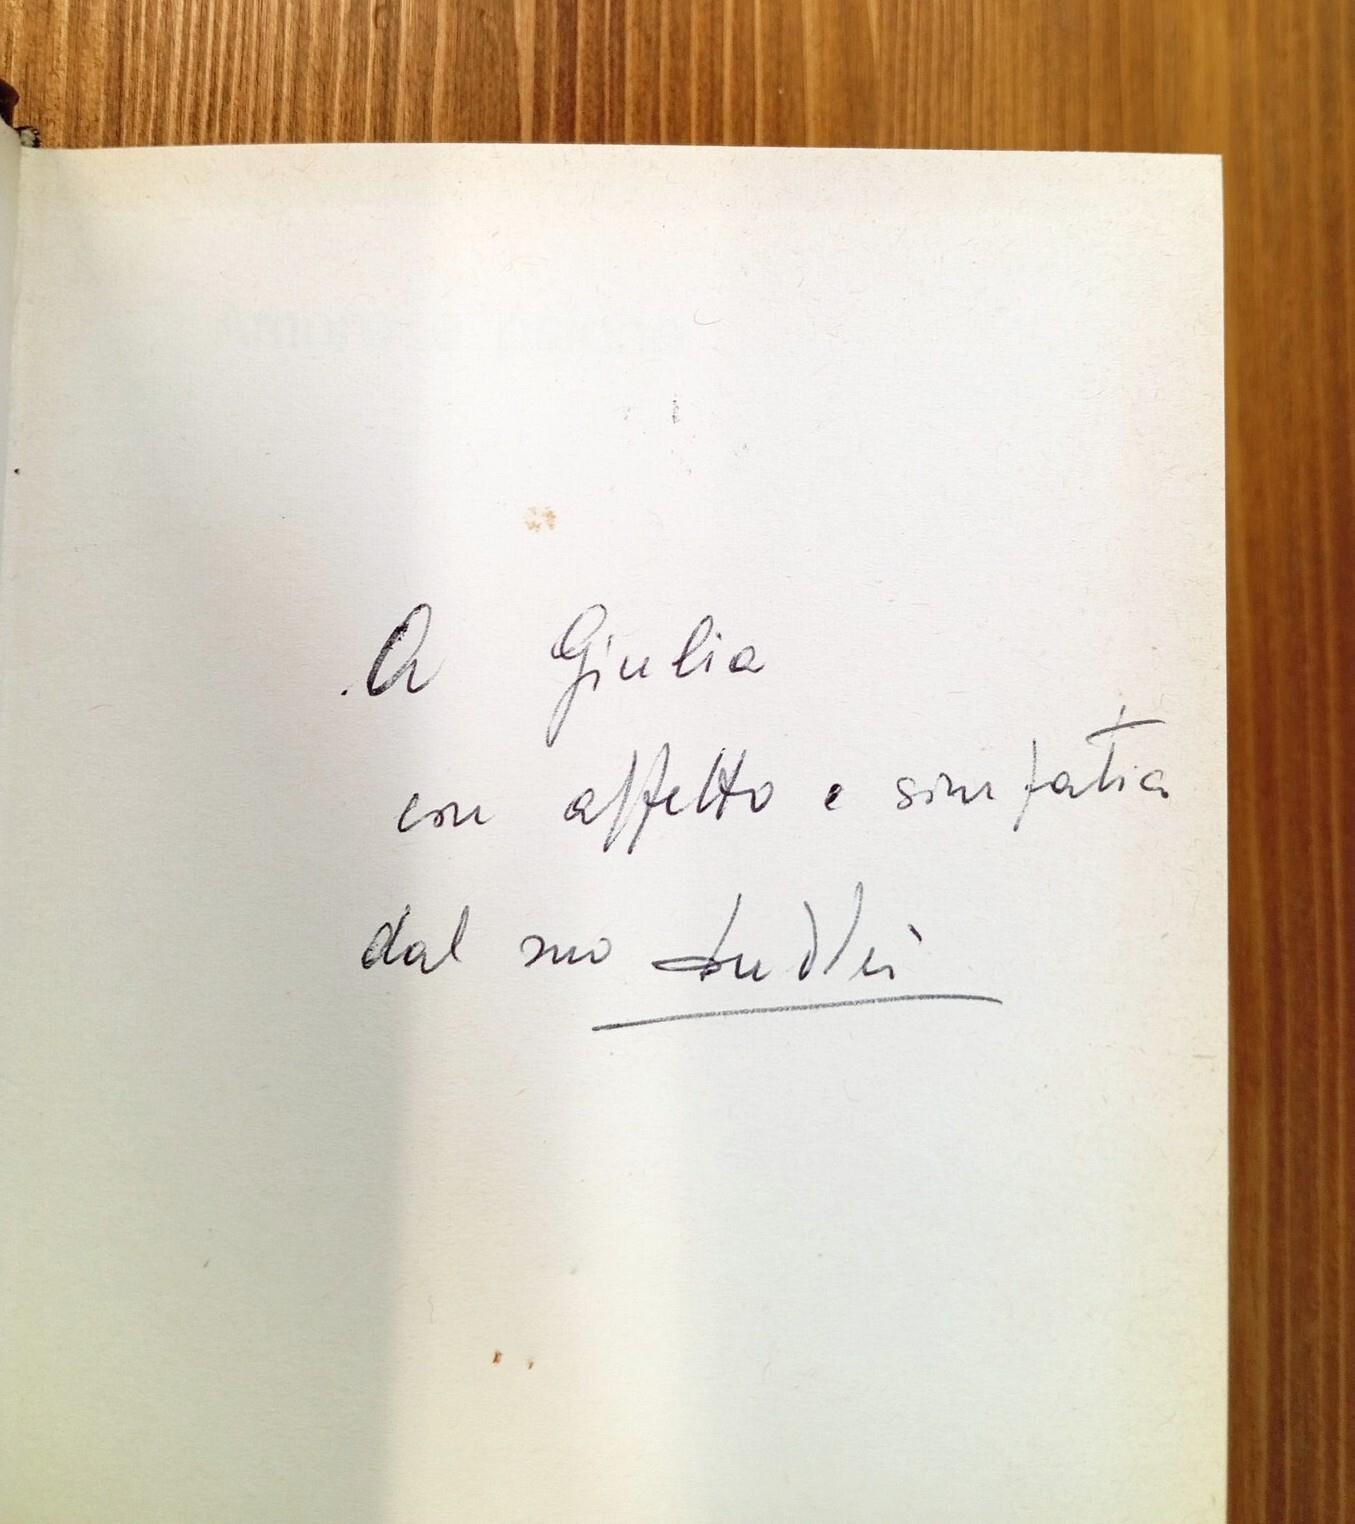 A Giulia
con affetto e simpatia
dal suo